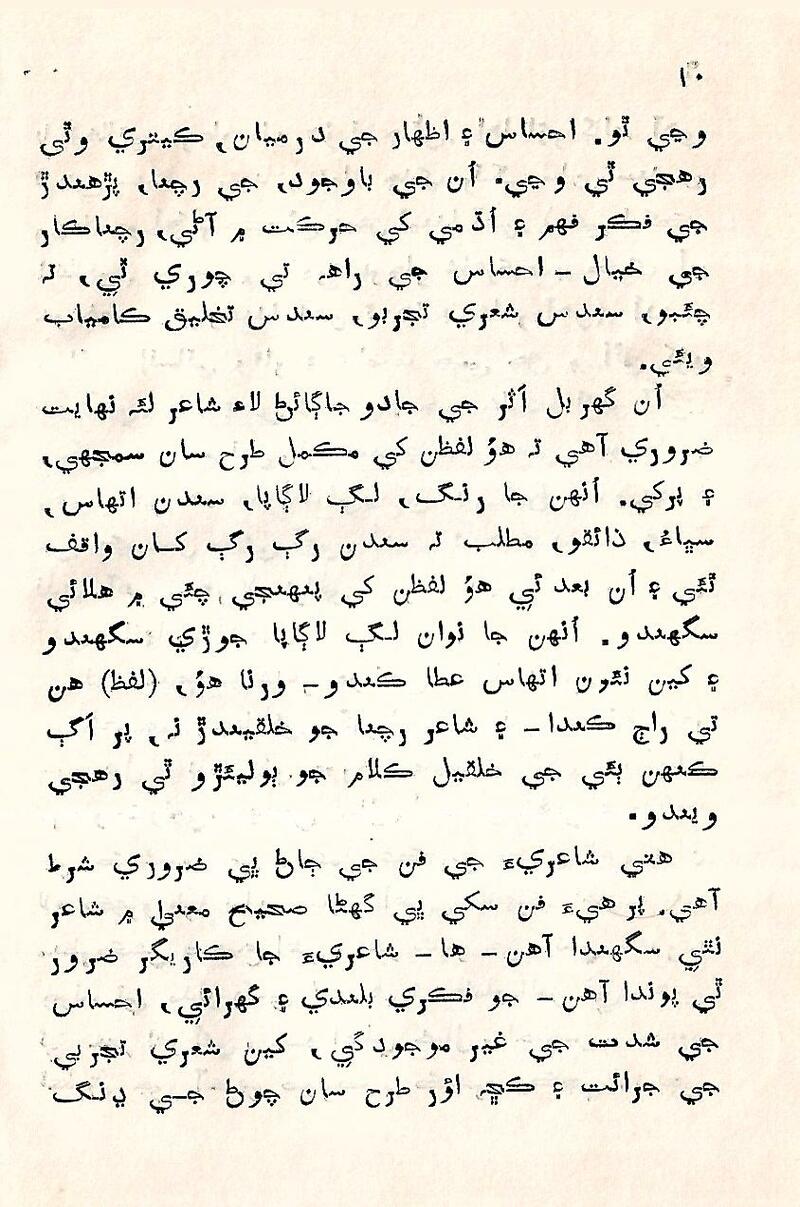 ١٠
وڃي ٿو. احساس ۽ اظهار جي درميان، ڪيتري وٿي
رهجي ٿي وڃي. اُن جي باوجود، جي رچنا، پڙهندڙ
جي فڪر فهم ۽ اُڌمي کي حرڪت ۾ آڻي، رچناڪار
جي خيال – احساس جي راهہ تي چوري ٿي، تہ
چئبو، سندس شعري تجربو، سندس تخليق ڪامياب
ويئي.
اُن گهربل اَثر جي جادو جاڳائڻ لاءِ شاعر لئہ نهايت
ضروري آهي تہ هوُ لفظن کي مڪمل طرح سان سمجهي،
۽ پرکي. اُنهن جا رنگ، لڳ لاڳاپا، سندن اتهاس،
سڀاءُ، ذائقو، مطلب تہ سندن رڳ رڳ کان واقف
ٿئي ۽ اُن بعد ئي هوُ لفظن کي پنهنجي چئي ۾ هلائي
سگهندو. اُنهن جا نوان لڳ لاڳاپا جوڙي سگهندو
۽ کين نئون اتهاس عطا ڪندو – ورنا هوُ، (لفظ) هن
تي راڄ ڪندا – ۽ شاعر رچنا جو خلقيندڙ نہ، پر اَڳ
ڪنهن ٻئي جي خلقيل ڪلام جو ٻوليئڙو ٿي رهجي
ويندو.
هتي شاعريءَ جي فن جي ڄاڻ ڀي ضروري شرط
آهي. پر هيءَ فن سکي ڀي گهڻا صحيح معنيٰ ۾ شاعر
نٿي سگهندا آهن – ها – شاعريءَ جا ڪاريگر ضرور
ٿي پوندا آهن – جو فڪري بلندي ۽ گهرائي، احساس
جي شدت جي غير موجودگي، کين شعري تجربي
جي جرائت ۽ ڪڇہ اؤر طرح سان چوڻ جي ڍنگ